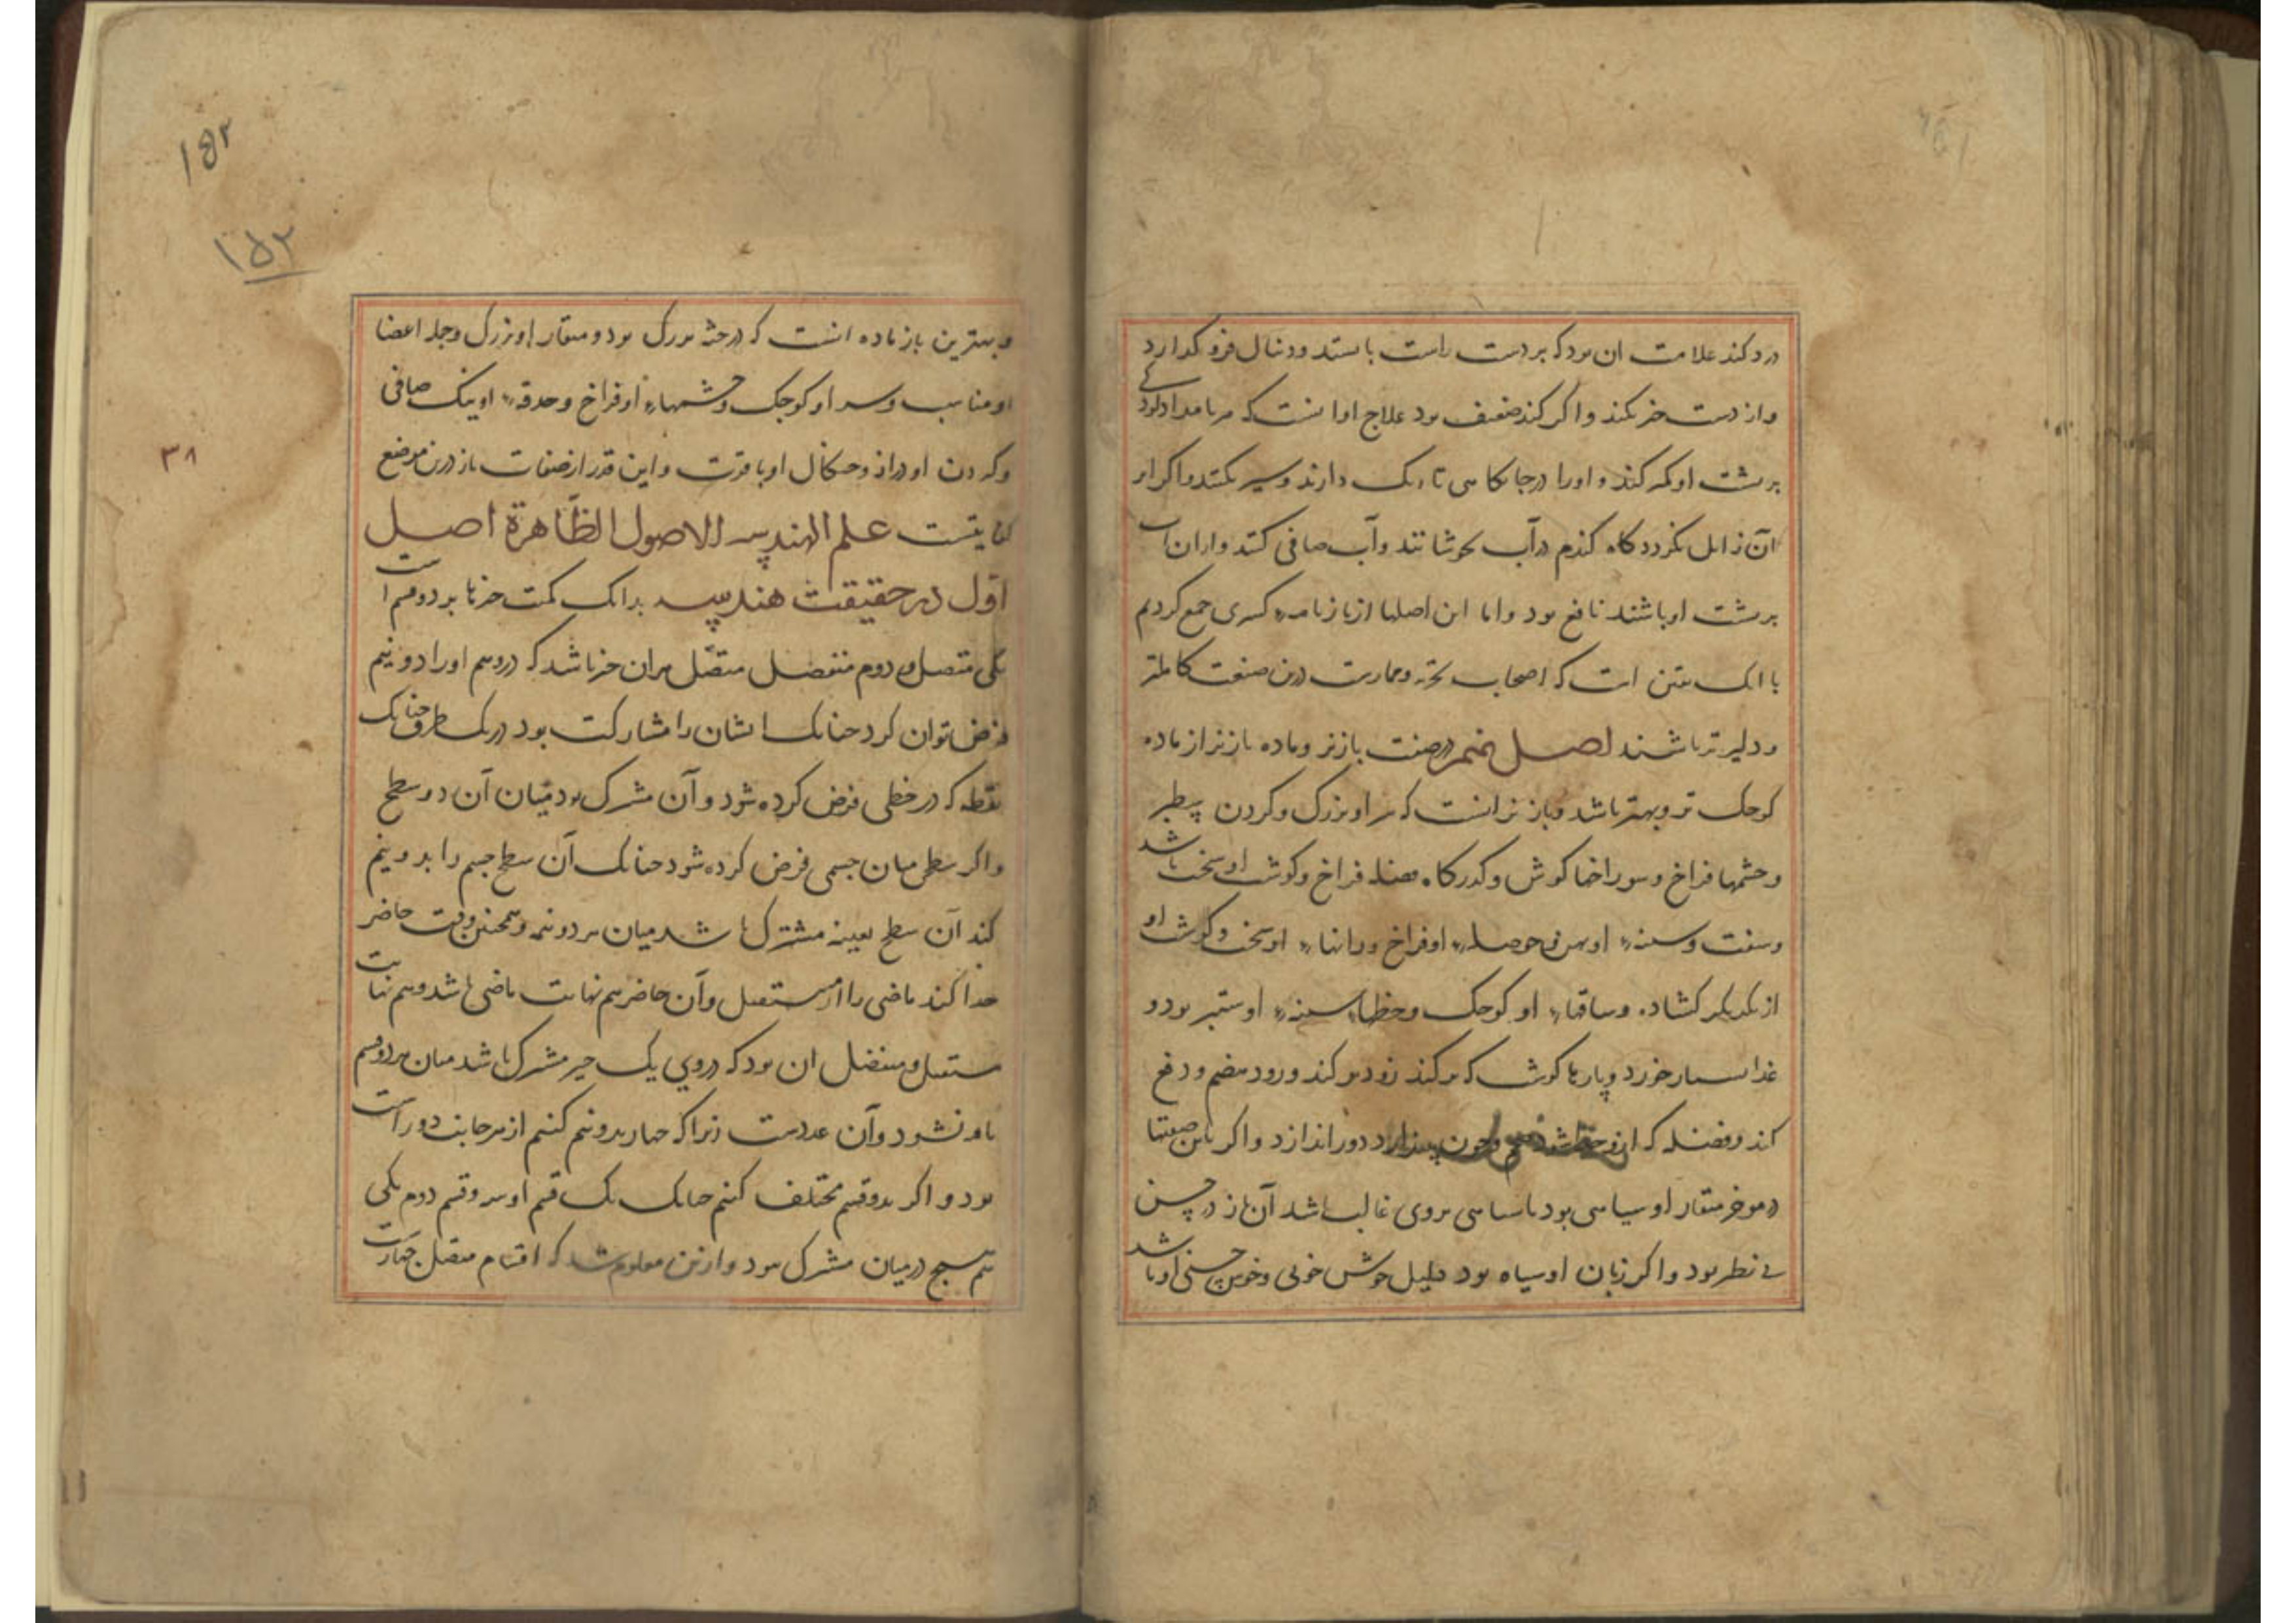 درد کند علامت ان بود که بر دست راست بایستد و دنبال فرو کذارد
و از دست حذر نکند و اگر کند ضعیف بود علاج او انست که هر بامداد
بر پشت او که کند و او را در جایکاهی تاریک دارند و سیر نکنند و اکر از
آن زایل نکردد کاه کندم در آب بجوشانند و آب صافی کنند و از ان آب
بر پشت او باشند نافع بود و اما این اصلها از بازنامهٔ کسری جمع کردیم
با انک متن است که اصحاب تجربه و ممارست درین صنعت کاملتر
و دلیرتر باشند اصل نهم در صفت باز نر و ماده باز نر از ماده
کوجک تر و بهتر باشد و باز نر انست که سر او بزرک و کردن سطبر
و جشمها فراخ و سوراخها کوش و کذرکاه فراخ و کوشت او سخت باشد
و سفت و سینهٔ او پهن و حوصلهٔ او فراخ و رانهاء او سخت و کوشت او
از یکدیکر کشاده و ساقهاء او کوجک و خطهاء سینهٔ او ستبر بود و
غذا بسیار خورد و پارها کوشت که برکند زود برکند و زود هضم و دفع
کند و فضله که ازو جون بیندازد دور اندازد و اکر باین صفتها
در موخر منقار او سیاهی بود یا سیاهی بروی غالب باشد آن باز در حسن
بی نظیر بود و اکر زبان او سیاه بود دلیل خوش خویی و خوب جستی او باشد
و بهترین باز ماده انست که در جثه بزرک بود و منقار او بزرک و جمله اعضا
او مناسب و سر او کوجک و جشمهاء او فراخ و حدقهٔ او نیک صافی
و کردن او دراز و جنکال او با قوت و این قدر از صفات باز درین موضع
کفایتست علم الهندسه الاصول الظاهرة اصل
اول در حقیقت هندسه بدانک کمیت جیزها بر دو قسم است
یکی متصل و دوم منفصل متصل هر ان جیز باشد که در وهم او را دو نیم
فرض توان کرد جنانک ایشان را مشارکت بود در یک طرف جنانک
نقطه که در خطی فرض کرده شود و آن مشترک بود میان آن دو سطح
و اکر سطحی میان جسمی فرض کرده شود جنانک آن سطح جسم را بدو نیم
کند آن سطح بعینه مشترک باشد میان هر دو نیمه و همجنین وقت حاضر
جدا کند ماضی را از مستقبل و آن حاضر هم نهایت ماضی باشد و هم نهایت
مستقبل و منفصل ان بود که در وی یک جیز مشترک باشد میان هر دو قسم
یافته نشود و آن عددست زیرا که جهار بدو نیم کنیم از هر جانب دو راست
بود و اکر بدو قسم مختلف کنیم جنانک یک قسم او سه و قسم دوم یکی
هم هیج در میان مشترک نبود و ازین معلوم شد که اقسام متصل جهارست
۱۵۲
۱۵۲
۳۸